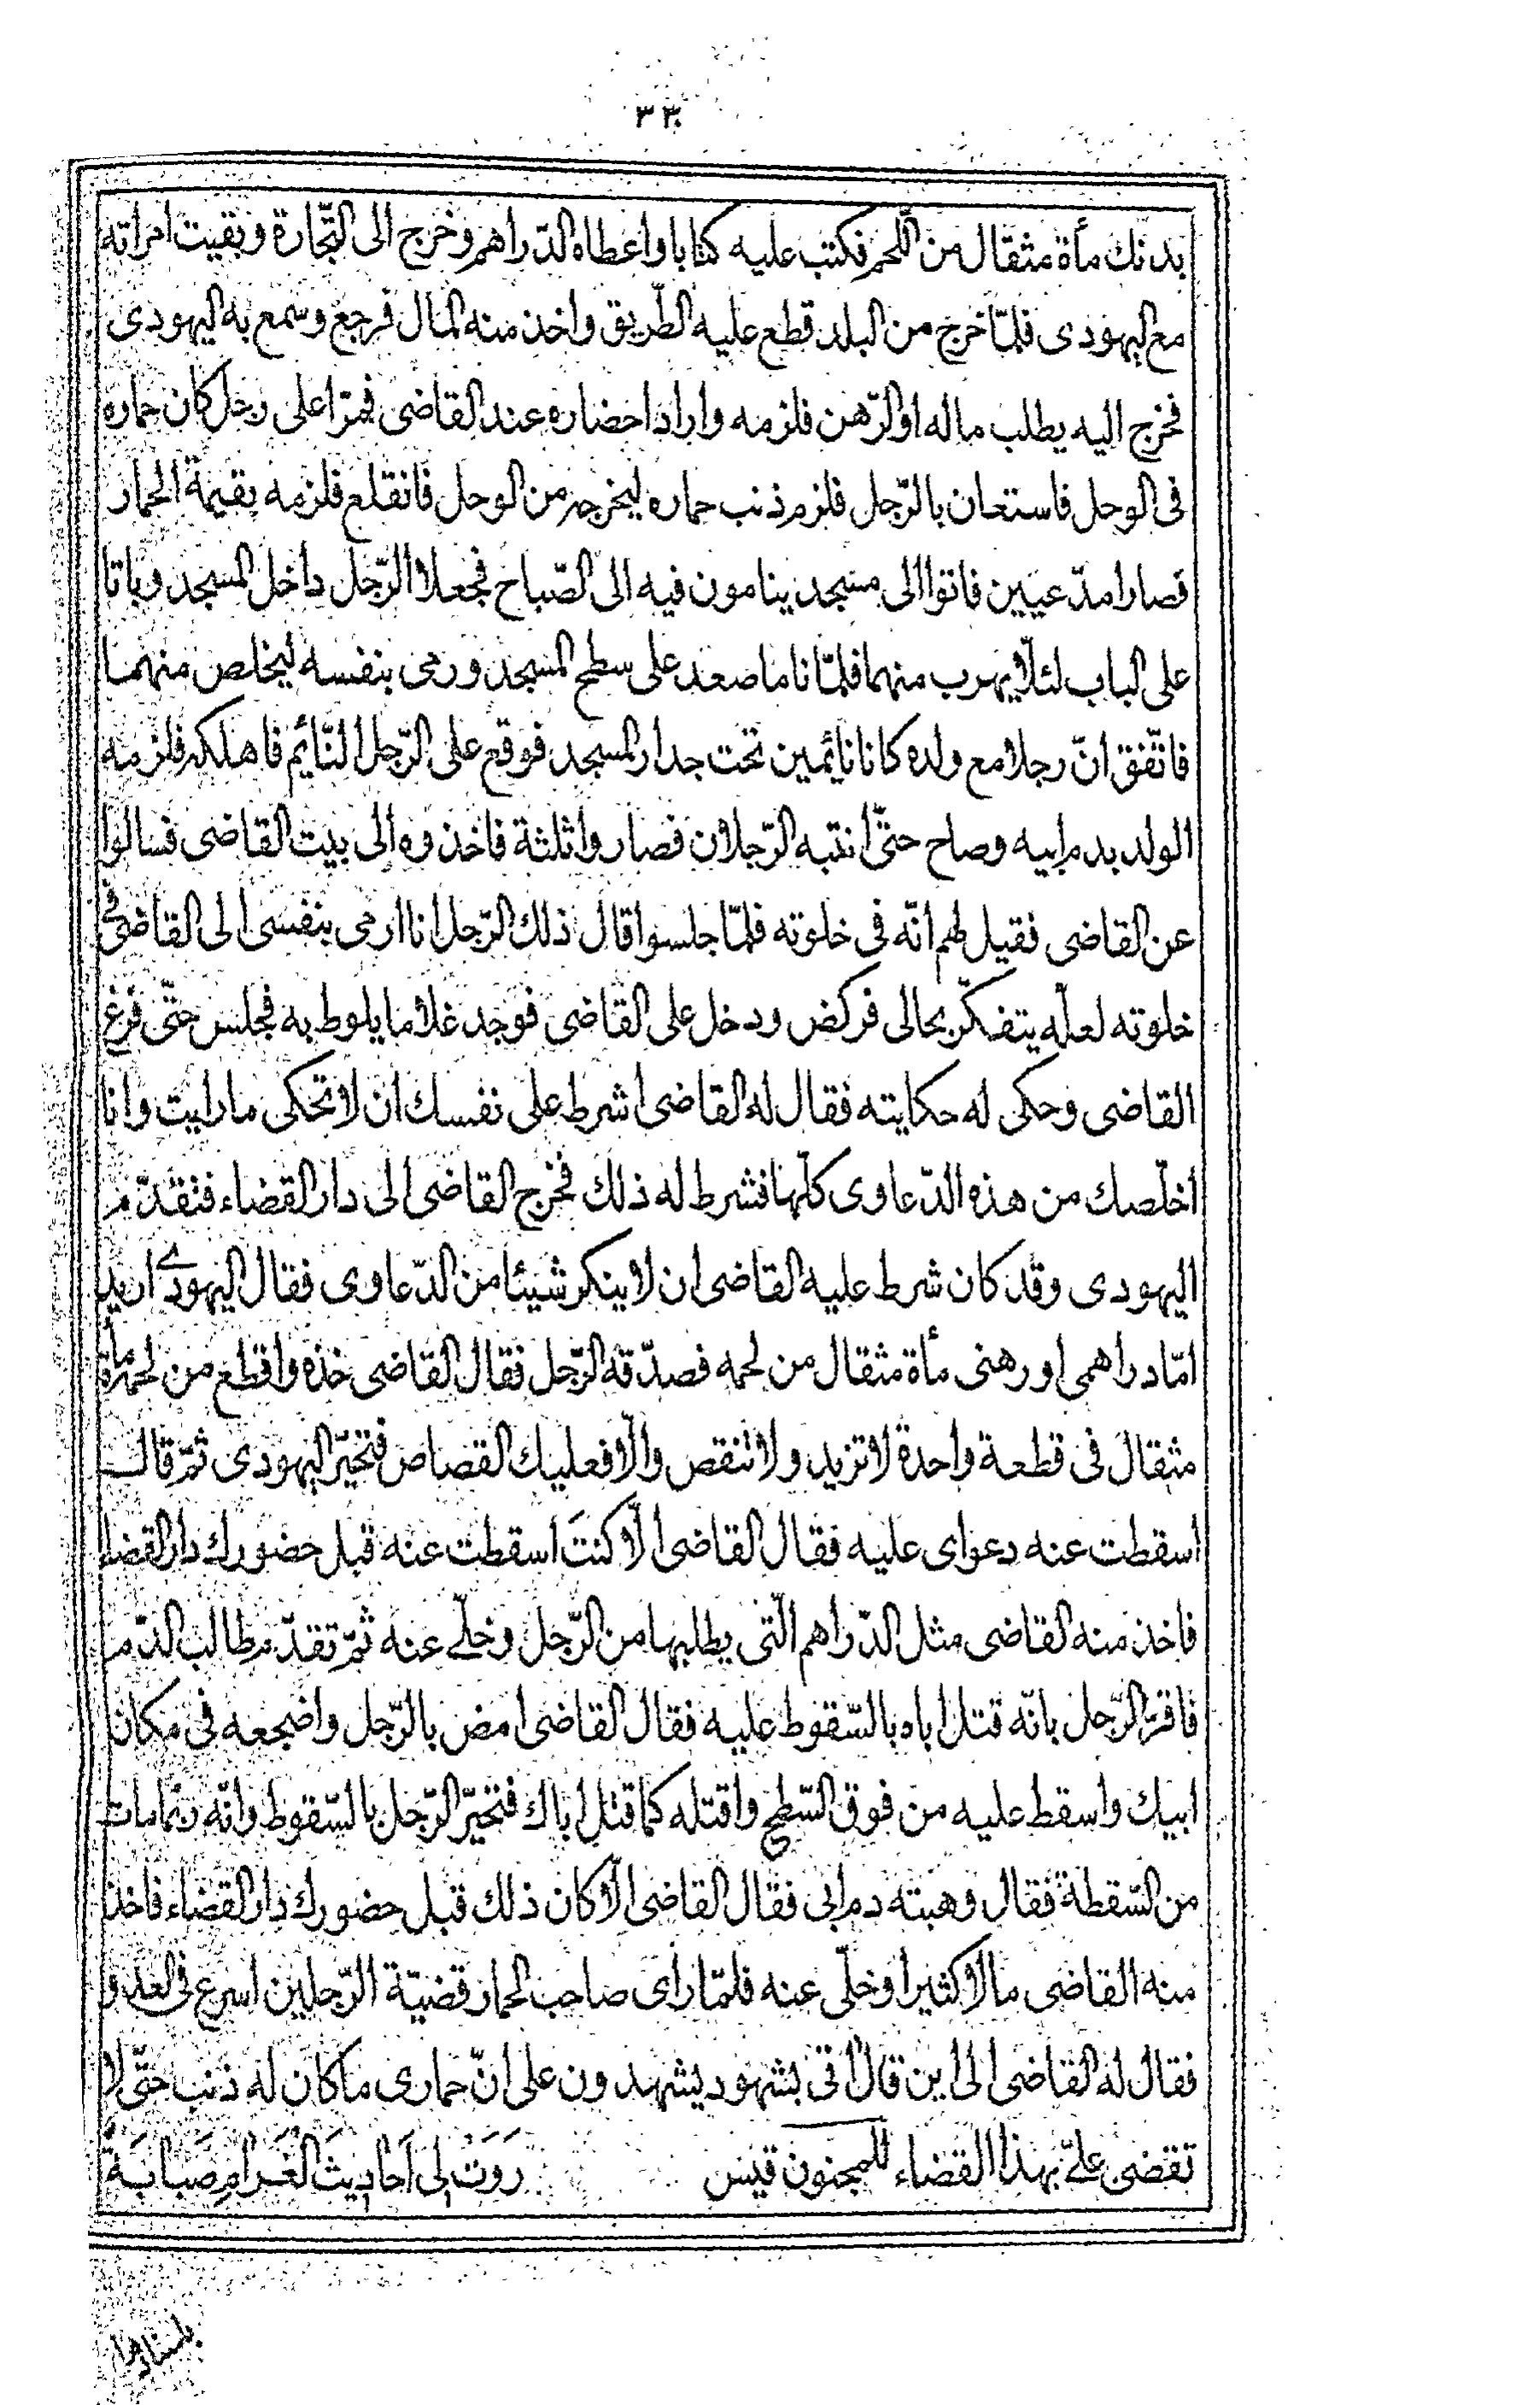 ٣٣
بدنك مأة مثقال من اللّحم فكتب عليه كتابا واعطاه الدّراهم وخرج الى التّجارة وبقيت امراته
مع اليهودى فلمّا خرج من البلد قطع عليه الطّريق واخذ منه المال فرجع وسمع به اليهودى
فخرج اليه يطلب ماله او الرّهن فلزمه واراد احضاره عند القاضى فمرّا على رجل كان حماره
فى الوحل فاستعان بالرّجل فلزم ذنب حماره ليخرجه من الوحل فانقلع فلزمه بقيمة الحمار
فصارا مدّعيين فاتوا الى مسجد ينامون فيه الى الصّباح فجعلا الرّجل داخل المسجد وباتا
على الباب لئلّا يهرب منهما فلمّا ناما صعد على سطح المسجد ورمى بنفسه ليخلص منهما
فاتّفق انّ رجلا مع ولده كانا نايمين تحت جدار المسجد فوقع على الرّجل النّايم فاهلكه فلزمه
الولد بدم ابيه وصاح حتّى انتبه الرّجلان فصاروا ثلثة فاخذوه الى بيت القاضى فسالوا
عن القاضى فقيل لهم انّه فى خلوته فلمّا جلسوا قال ذلك الرّجل انا ارمى بنفسى الى القاضى فى
خلوته لعلّه يتفكّر بحالى فركض ودخل على القاضى فوجد غلاما يلوط به فجلس حتّى فرغ
القاضى وحكى له حكايته فقال له القاضى اشرط على نفسك ان لا تحكى ما رايت وانا
اخلّصك من هذه الدّعاوى كلّها فشرط له ذلك فخرج القاضى الى دار القضاء فتقدّم
اليهودى وقد كان شرط عليه القاضى ان لا ينكر شيئا من الدّعاوى فقال اليهودى اريد
امّا دراهمى او رهنى مأة مثقال من لحمه فصدّقه الرّجل فقال القاضى خذه واقطع من لحمه مأة
مثقال فى قطعة واحدة لا تزيد ولا تنقص والّا فعليك القصاص فتحيّر اليهودى ثمّ قال
اسقطت عنه دعواى عليه فقال القاضى الّا كنتَ اسقطت عنه قبل حضورك دار القضاء
فاخذ منه القاضى مثل الدّراهم الّتى يطلبها من الرّجل وخلّى عنه ثمّ تقدّم طالب الدّم
فاقرّ الرّجل بانّه قتل اباه بالسّقوط عليه فقال القاضى امض بالرّجل واضجعه فى مكان
ابيك واسقط عليه من فوق السّطح واقتله كما قتل اباك فتحيّر الرّجل بالسّقوط وانّه ربّما مات
من السّقطة فقال وهبته دم ابى فقال القاضى الّا كان ذلك قبل حضورك دار القضاء فاخذ
منه القاضى مالا كثيرا وخلّى عنه فلمّا راى صاحب الحمار قضيّة الرّجلين اسرع فى العدو
فقال له القاضى الى اين قال اتى بشهود يشهدون على انّ حمارى ما كان له ذنب حتّى لا
تقضى علىّ بهذا القضاء للمجنون قيس رَوَتْ لى اَحاديثَ الغَرامِ صَبابَةً
باسنادها